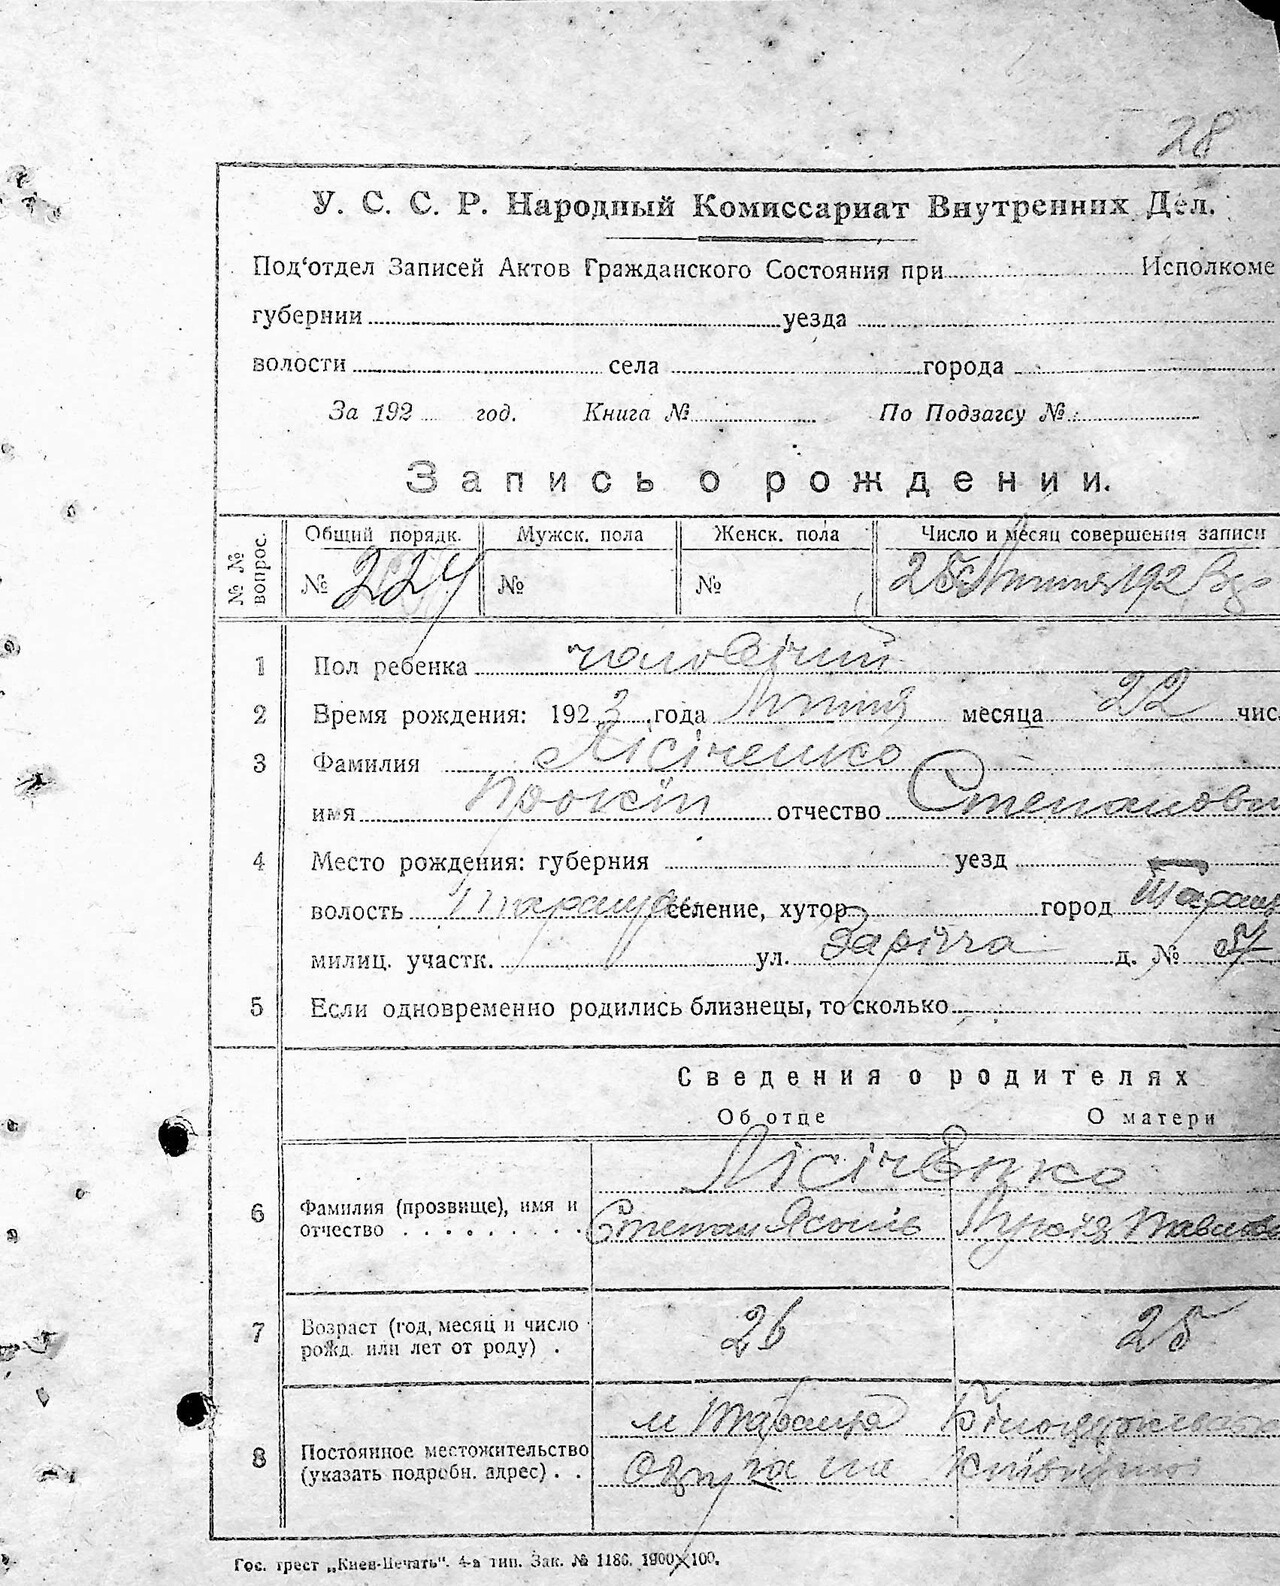 28
У. С. С. Р. Народный Комиссариат Внутренних Дел.
Под'отдел Записей Актов Гражданского Состояния при Исполкоме
губернии уезда
волости села города
За 192 год. Книга № По Подзагсу №
Запись о рождении.
№ № вопрос.
Общий порядк. Мужск. пола Женск. пола Число и месяц совершения записи
№ 224 № № 25 Липня 1923
1 Пол ребенка чоловічий
2 Время рождения: 192 3 года Липня месяца 22 чис
3 Фамилия Лісіченко
имя Прокіп отчество Степанови
4 Место рождения: губерния уезд
волость Таращ селение, хутор город Таращ
милиц. участк. ул. Заріччя д. №
5 Если одновременно родились близнецы, то сколько
Сведения о родителях
Об отце О матери
Лісіченко
6 Фамилия (прозвище), имя и отчество Степан
7 Возраст (год, месяц и число рожд. или лет от роду) . 26 25
м Тараща Білоцерківська
8 Постоянное местожительство (указать подробн. адрес) . . Округа на Київщині
Гос. трест „Киев-Печать". 4-а тип. Зак. № 1186. 1900×100.